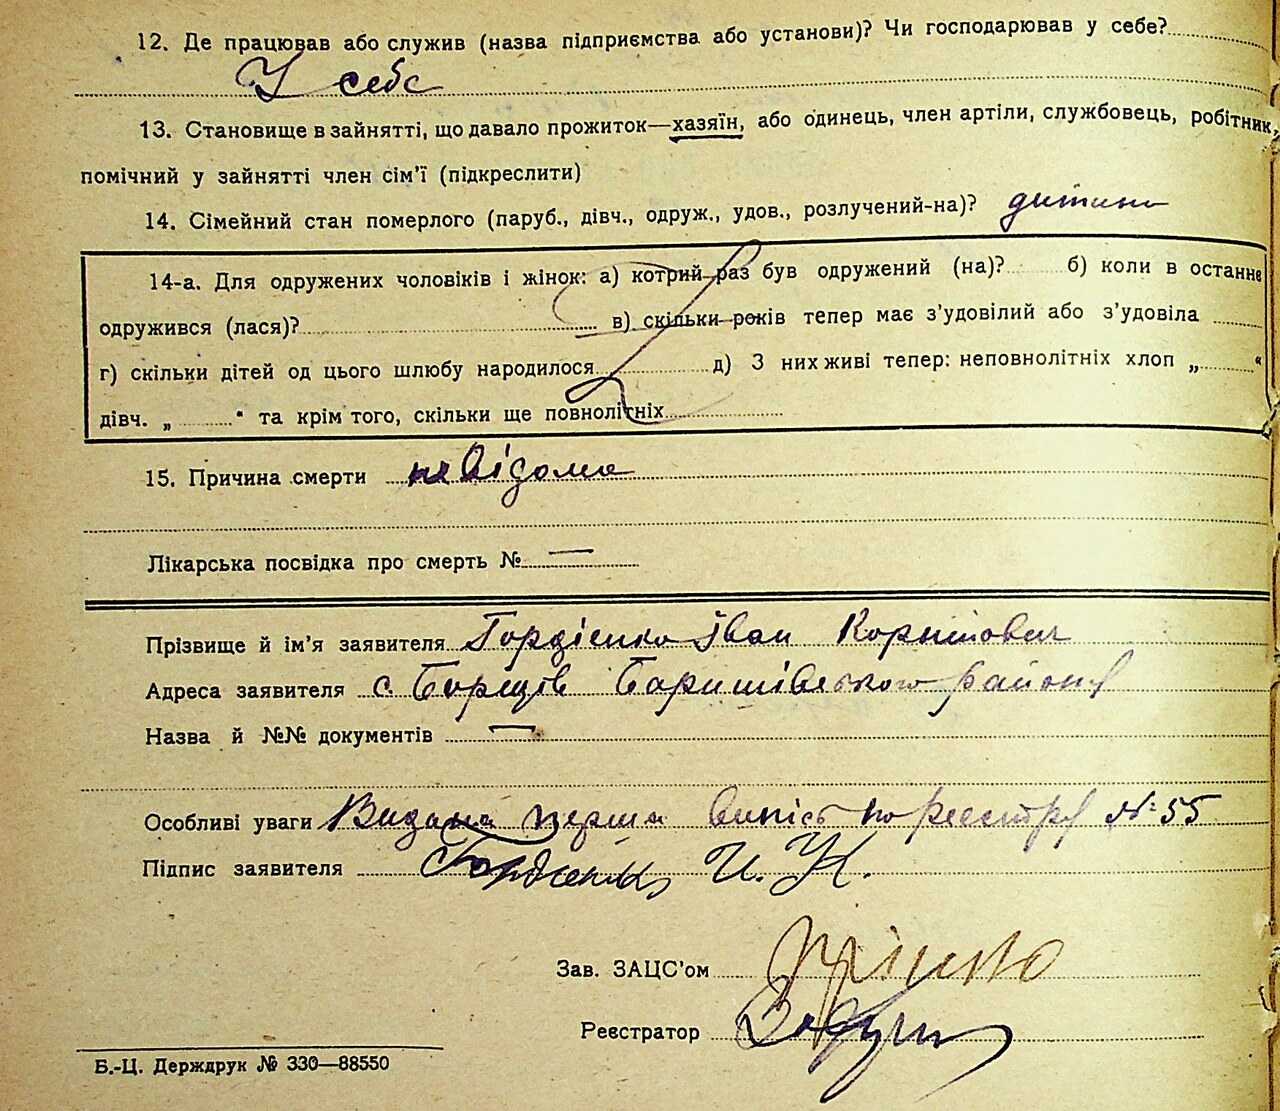 12. Де працював або служив (назва підприємства або установи)? Чи господарював у себе?
У себе
13. Становище в зайнятті, що давало прожиток—хазяїн, або одинець, член артіли, службовець, робітник,
помічний у зайнятті член сім'ї (підкреслити)
14. Сімейний стан померлого (паруб., дівч., одруж., удов., розлучений-на)? дитина
14-а. Для одружених чоловіків і жінок: а) котрий раз був одружений (на)? б) коли в останнє
одружився (лася)? в) скільки років тепер має з'удовілий або з'удовіла
г) скільки дітей од цього шлюбу народилося д) З них живі тепер: неповнолітніх хлоп „ “
дівч. „ “ та крім того, скільки ще повнолітніх
15. Причина смерти невідома
Лікарська посвідка про смерть № —
Прізвище й ім'я заявителя Гордієнко Іван
Адреса заявителя с. Борщів Баришівського району
Назва й №№ документів —
Особливі уваги Видана перша випісь по реєстру № 55
Підпис заявителя Гордієнко И. К.
Зав. ЗАЦС'ом
Реєстратор
Б.-Ц. Держдрук № 330—88550